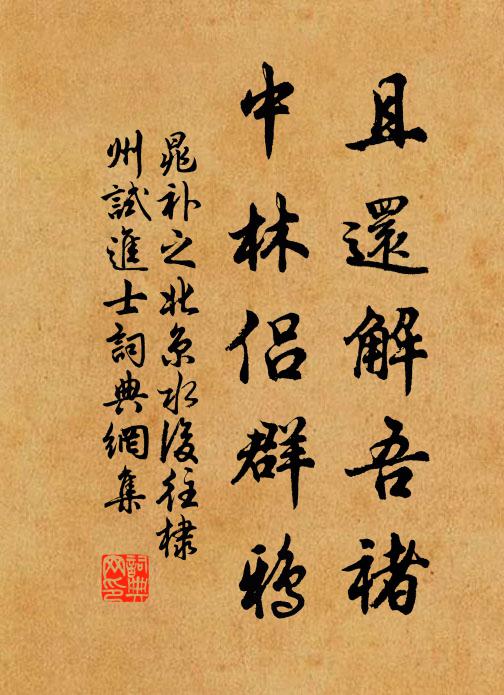 且還解吾褚
中林侣群鴉
晁补之北京水後往棣
州試進士詞典網集
詞典网印